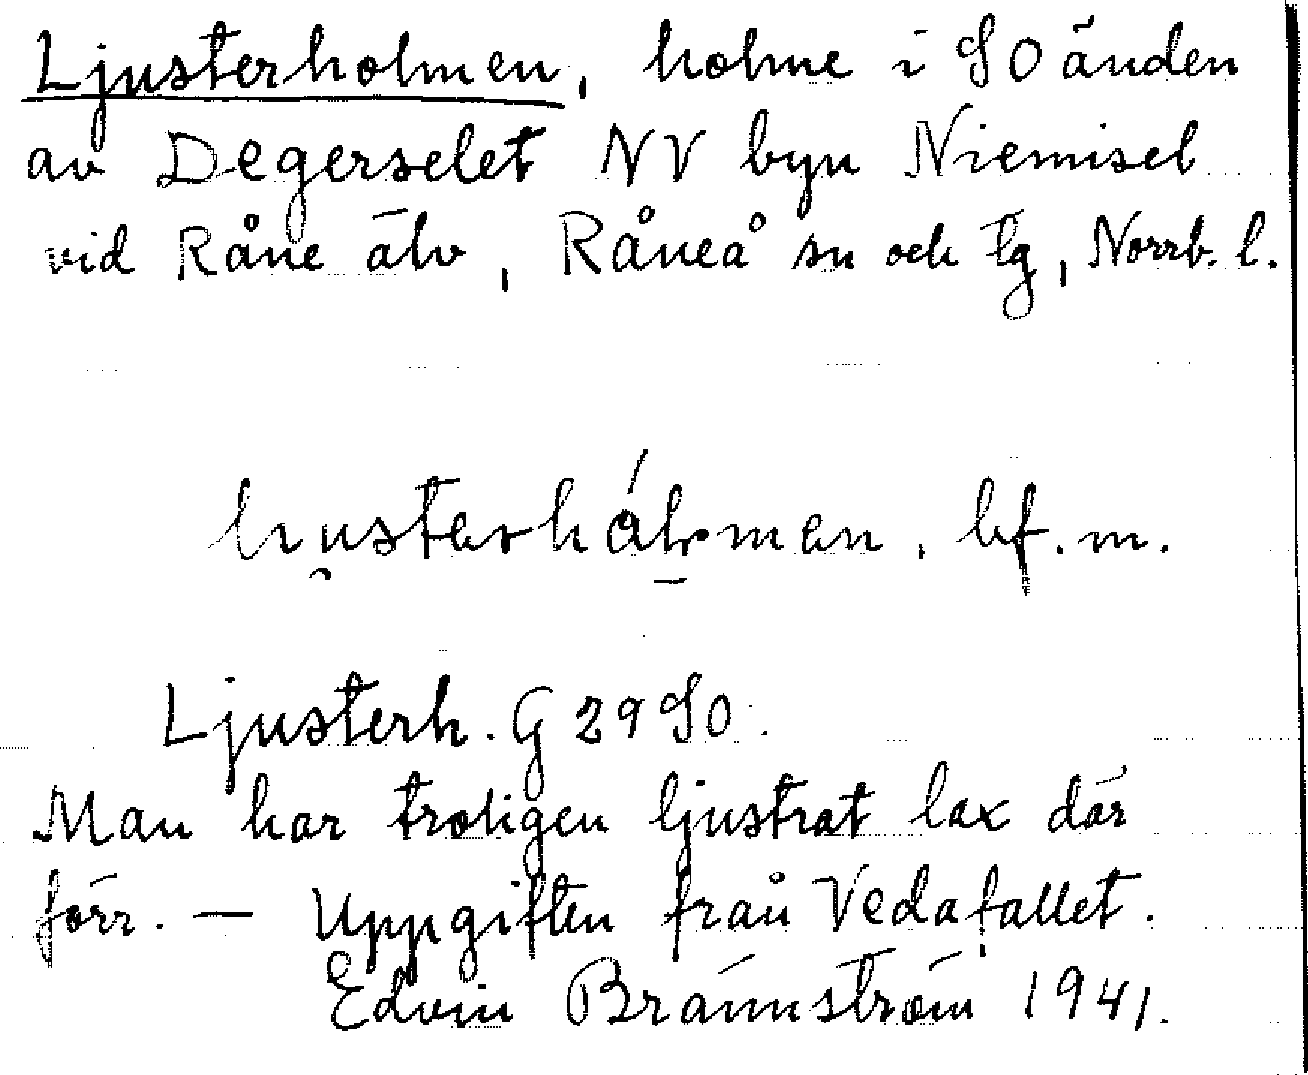 Ljusterholmen, holme i SO änden
av Degerselet NV byn Niemisel
vid Råne älv, Råneå sn och tg, Norrb. l.
bf. m.
Ljusterh. G 29 SO.
Man har troligen ljustrat lax där
förr. — Uppgiften från Vedafallet.
Edvin Brännström 1941.